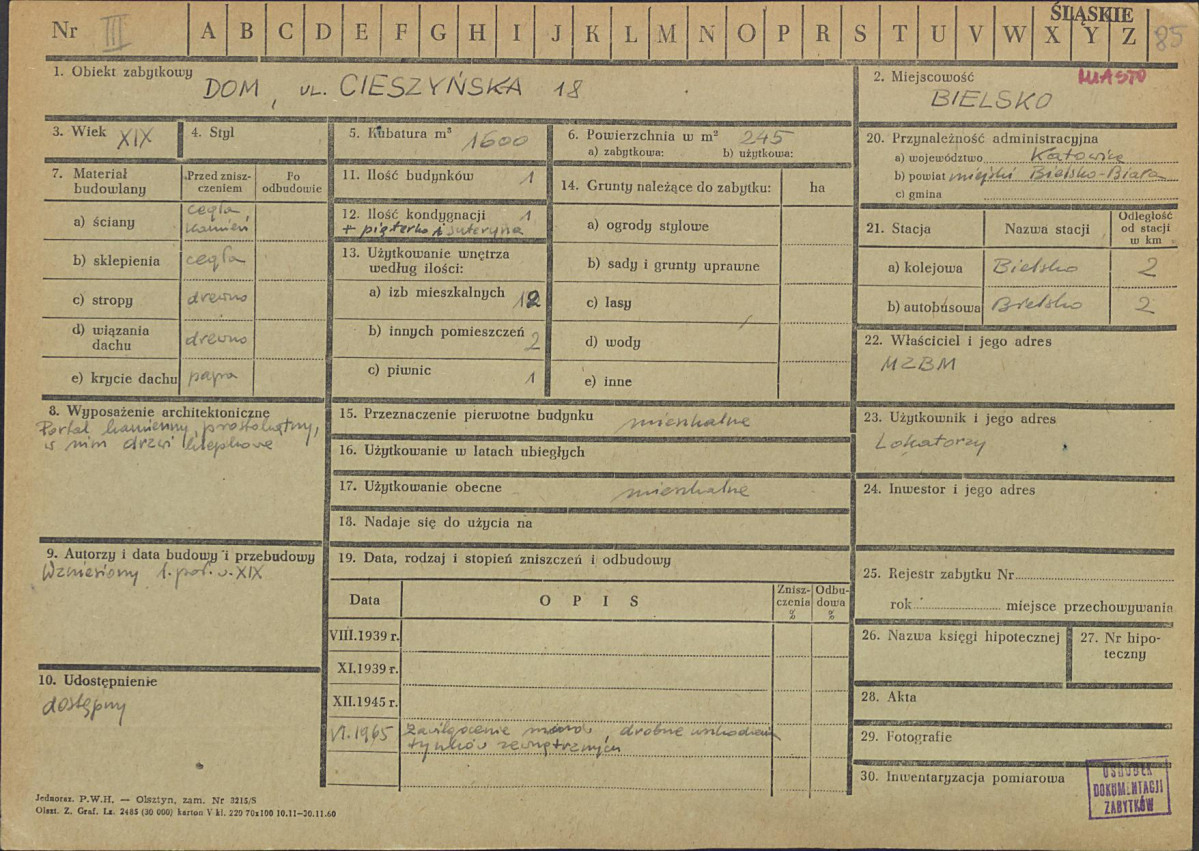 Nr III A B C D E F G H I J K L M N O P R S T U V W X Y Z 85
ŚLĄSKIE
1. Obiekt zabytkowy
DOM, UL. CIESZYŃSKA 18
2. Miejscowość MIASTO
BIELSKO
3. Wiek XIX
4. Styl
5. Kubatura m³ 1600
6. Powierzchnia w m² 245
a) zabytkowa: b) użytkowa:
7. Materiał budowlany
Przed zniszczeniem
Po odbudowie
a) ściany cegła, kamień
b) sklepienia cegła
c) stropy drewno
d) wiązania dachu drewno
e) krycie dachu papa
8. Wyposażenie architektoniczne
Portal kamienny, prostokątny,
w nim drzwi klepkowe
9. Autorzy i data budowy i przebudowy
Wzniesiony 1. poł. w. XIX
10. Udostępnienie
dostępny
11. Ilość budynków 1
12. Ilość kondygnacji 1
+ piąterko i suteryna
13. Użytkowanie wnętrza
według ilości:
a) izb mieszkalnych 12
b) innych pomieszczeń 2
c) piwnic 1
14. Grunty należące do zabytku: ha
a) ogrody stylowe
b) sady i grunty uprawne
c) lasy
d) wody
e) inne
15. Przeznaczenie pierwotne budynku mieszkalne
16. Użytkowanie w latach ubiegłych
17. Użytkowanie obecne mieszkalne
18. Nadaje się do użycia na
19. Data, rodzaj i stopień zniszczeń i odbudowy
Data OPIS Zniszczenia % Odbudowa %
VIII.1939 r.
XI.1939 r.
XII.1945 r.
VI.1965 Zawilgocenie murów, drobne uszkodzenia
tynków zewnętrznych
20. Przynależność administracyjna
a) województwo Katowice
b) powiat miejski Bielsko-Biała
c) gmina
21. Stacja Nazwa stacji Odległość od stacji w km
a) kolejowa Bielsko 2
b) autobusowa Bielsko 2
22. Właściciel i jego adres
MZBM
23. Użytkownik i jego adres
Lokatorzy
24. Inwestor i jego adres
25. Rejestr zabytku Nr
rok miejsce przechowywania
26. Nazwa księgi hipotecznej
27. Nr hipoteczny
28. Akta
29. Fotografie
30. Inwentaryzacja pomiarowa
OŚRODEK
DOKUMENTACJI
ZABYTKÓW
Jednoraz. P.W.H. — Olsztyn, zam. Nr 3215/S
Olszt. Z. Graf. Lz. 2485 (30 000) karton V kl. 220 70x100 10.11—30.11.60